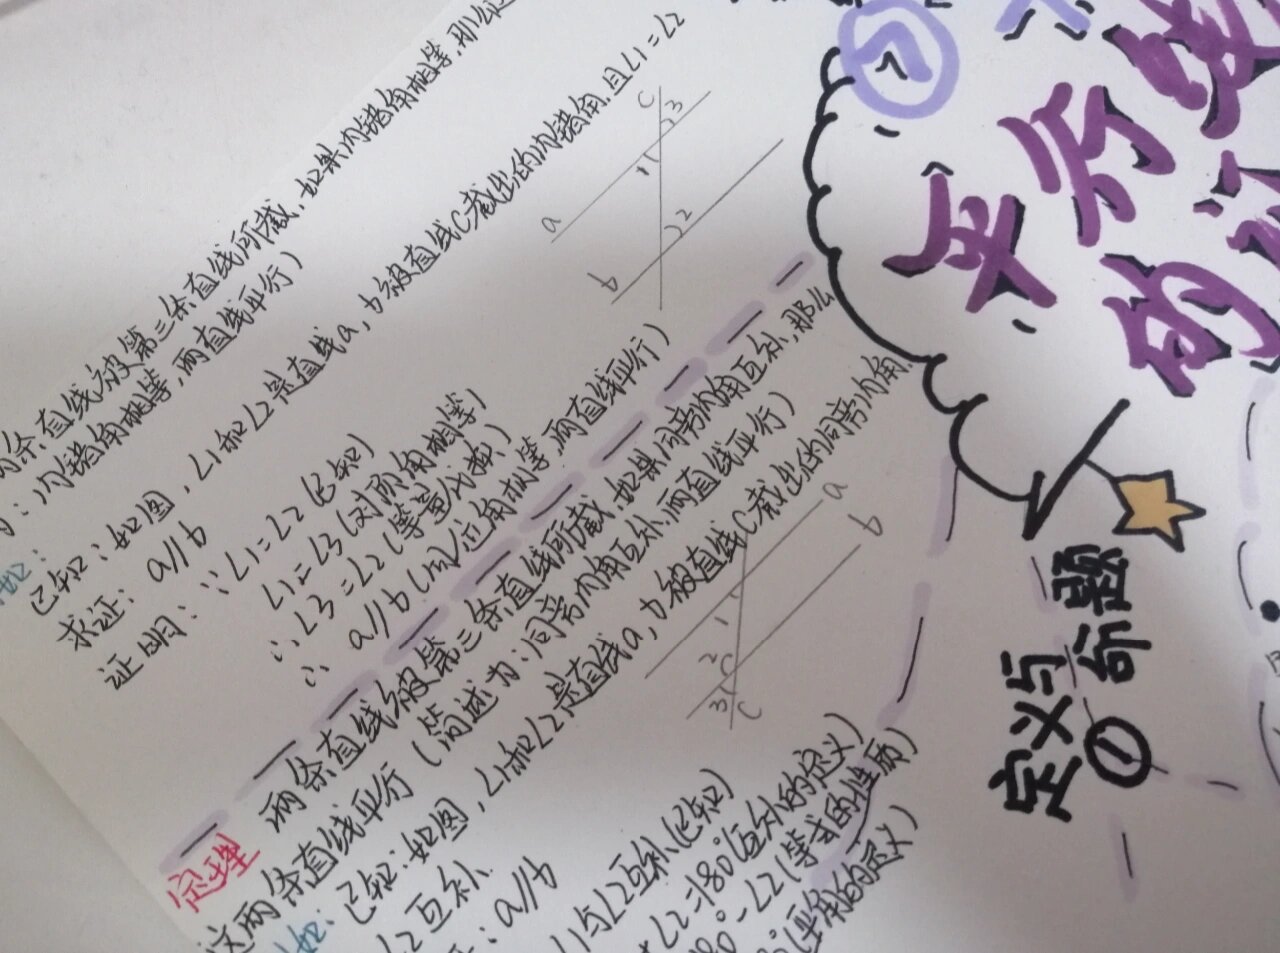 条直线被第三条直线所截，如果内错角相等，那么
：内错角相等，两直线平行）
如：
已知：如图，∠1和∠2是直线a，b被直线c截出的内错角，且∠1=∠2
求证：a//b
证明：∵∠1=∠2（已知）
∠1=∠3（对顶角相等）
∴∠3=∠2（等量代换）
∴a//b（同位角相等，两直线平行）
c
3
1
a
2
b
定理 两条直线被第三条直线所截，如果同旁内角互补，那么
这两条直线平行（简述为：同旁内角互补，两直线平行）
如：已知：如图，∠1和∠2是直线a，b被直线c截出的同旁内角，
∠2互补.
：a//b
∠1与∠2互补（已知）
∠2=180°（互补的定义）
80°-∠2（等式的性质）
（平角的定义）
a
b
1
2
3
c
②
平行
的
定义与
命题
①